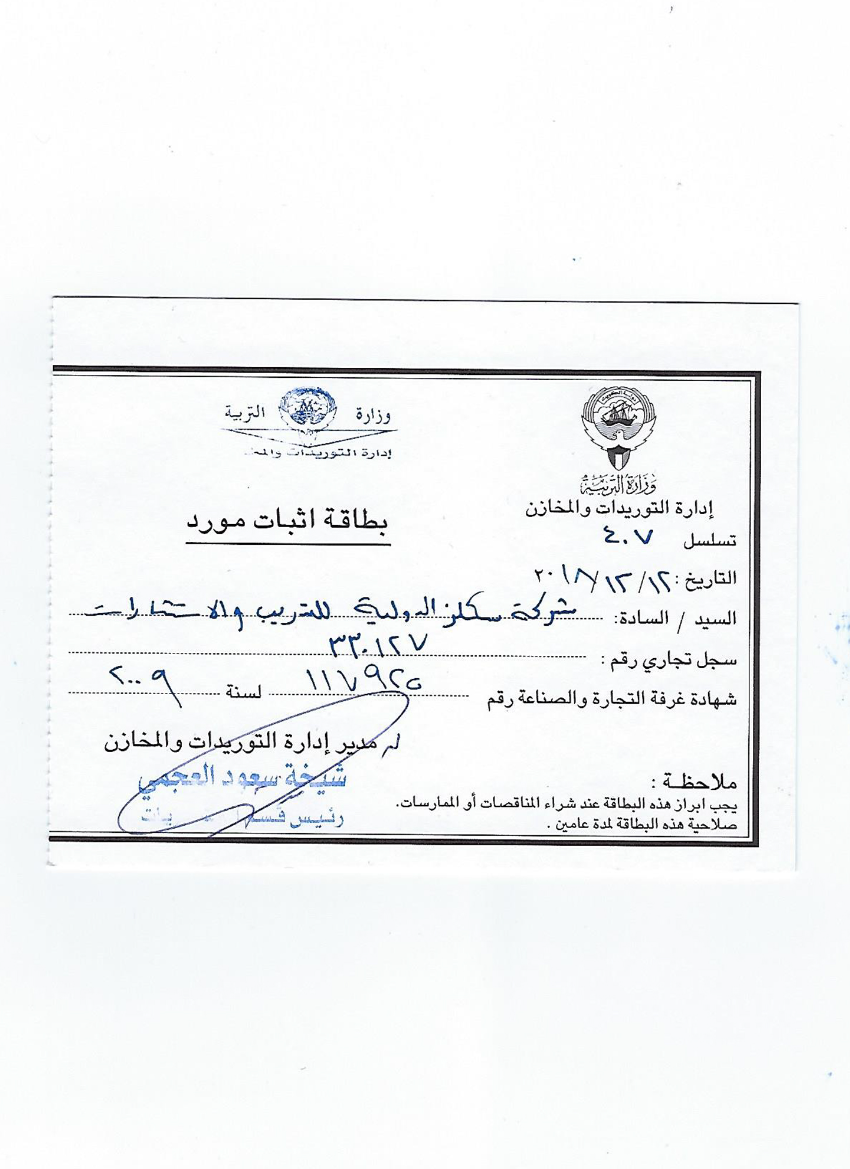 وزارة التربية
إدارة التوريدات والمخازن
تسلسل ٤٠٧
التاريخ : ٢٠١٨/١٢/١٢
وزارة التربية
إدارة التوريدات
بطاقة اثبات مورد
السيد / السادة: شركة سكلز الدولية للتدريب والاستشارات
سجل تجاري رقم : ٣٣٠١٢٧
شهادة غرفة التجارة والصناعة رقم ١١٧٩٢٥ لسنة ٢٠٠٩
مدير إدارة التوريدات والمخازن
شيخة سعود العجمي
رئيس قسم
ملاحظة :
يجب ابراز هذه البطاقة عند شراء المناقصات أو الممارسات.
صلاحية هذه البطاقة لمدة عامين .